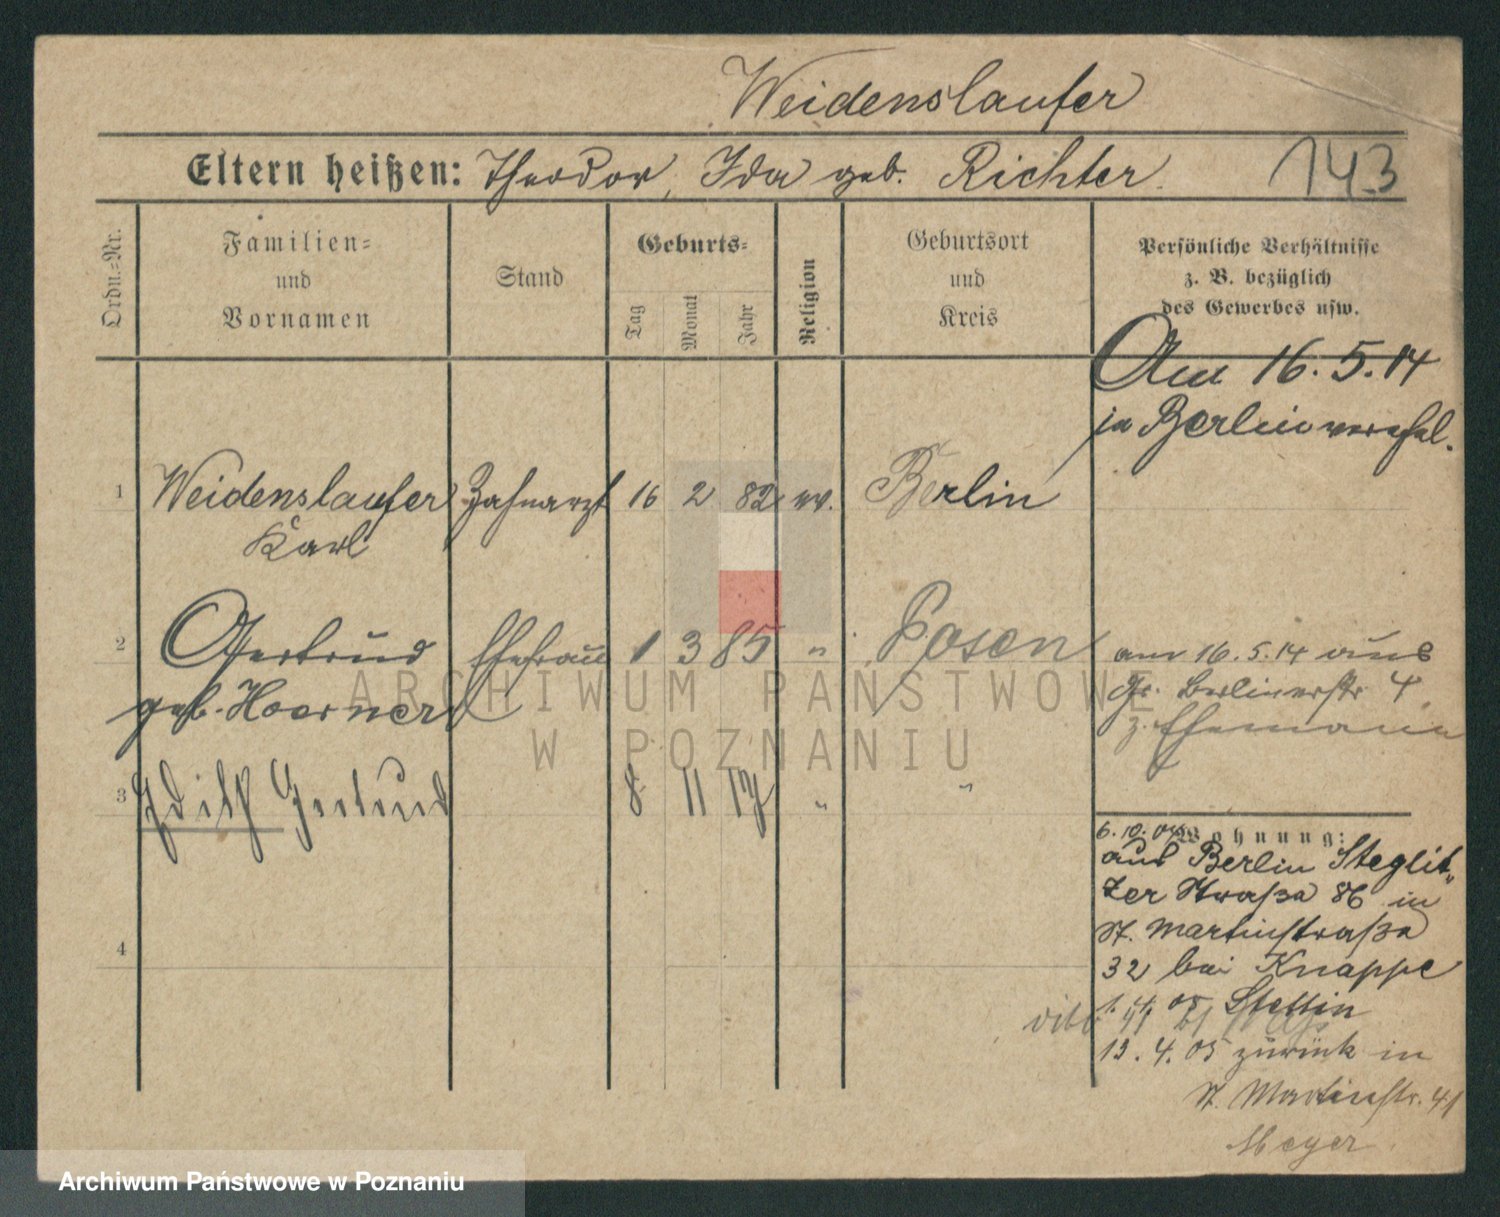 Weidenslaufer
Eltern heißen: Theodor, Ida geb. Richter.
143
Ordn.=Nr.
Familien=
und
Vornamen
Stand
Geburts=
Tag
Monat
Jahr
Religion
Geburtsort
und
Kreis
Persönliche Verhältnisse
z. B. bezüglich
des Gewerbes usw.
Am 16.5.14
in Berlin verehel.
1 Weidenslaufer Zahnarzt 16 2 82 ev. Berlin
Karl
2 Gertrud Ehefrau 1 3 85 " Posen
geb. Hoerner
am 16.5.14 aus
Gr. Berlinerstr 4
z. Ehemann
3 Edith Gertrud 8 11 17 " "
4
Wohnung:
6.10.04
aus Berlin Steglit-
zer Straße 86 in
St. Martinstraße
32 bei Knappe
1. 4. 05 Stettin
13. 4. 05 zurück in
St. Martinstr. 41
Meyer
ARCHIWUM PAŃSTWOWE
W POZNANIU
Archiwum Państwowe w Poznaniu